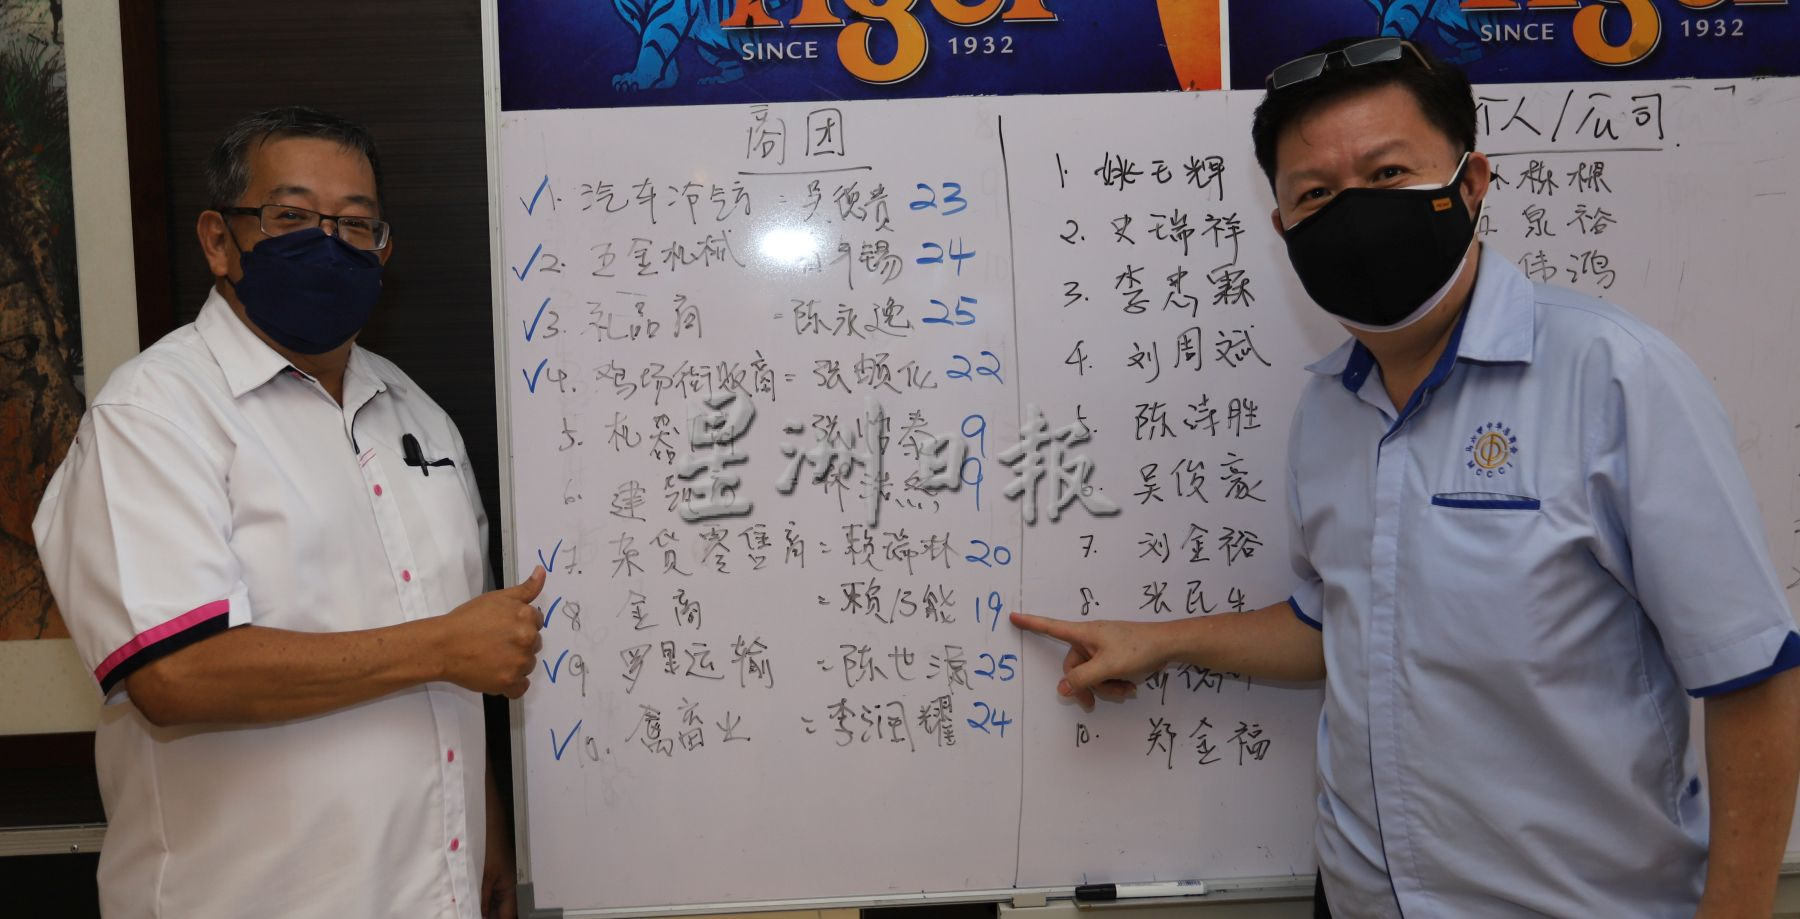 Tiger
SINCE 1932
Tiger
SINCE 1932
商团
✓1. 汽车冷气 = 吴德贵 23
✓2. 五金机械 锡 24
✓3. 礼品商 = 陈永逸 25
✓4. 鸡场街贩商 = 张 化 22
5. 机器 张 泰 9
6. 建 林 9
✓7. 杂货零售商 = 赖瑞林 20
✓8 金商 = 赖乃能 19
✓9 罗里运输 = 陈世 25
✓10. 畜业 = 李润耀 24
个人/公司
1. 姚 辉
2. 史瑞祥
3. 李忠霖
4. 刘周斌
5. 陈诗胜
6. 吴俊豪
7. 刘金裕
8. 张民生
德
10. 郑金福
栋
泉裕
伟鸿
星洲日报
MCCCI